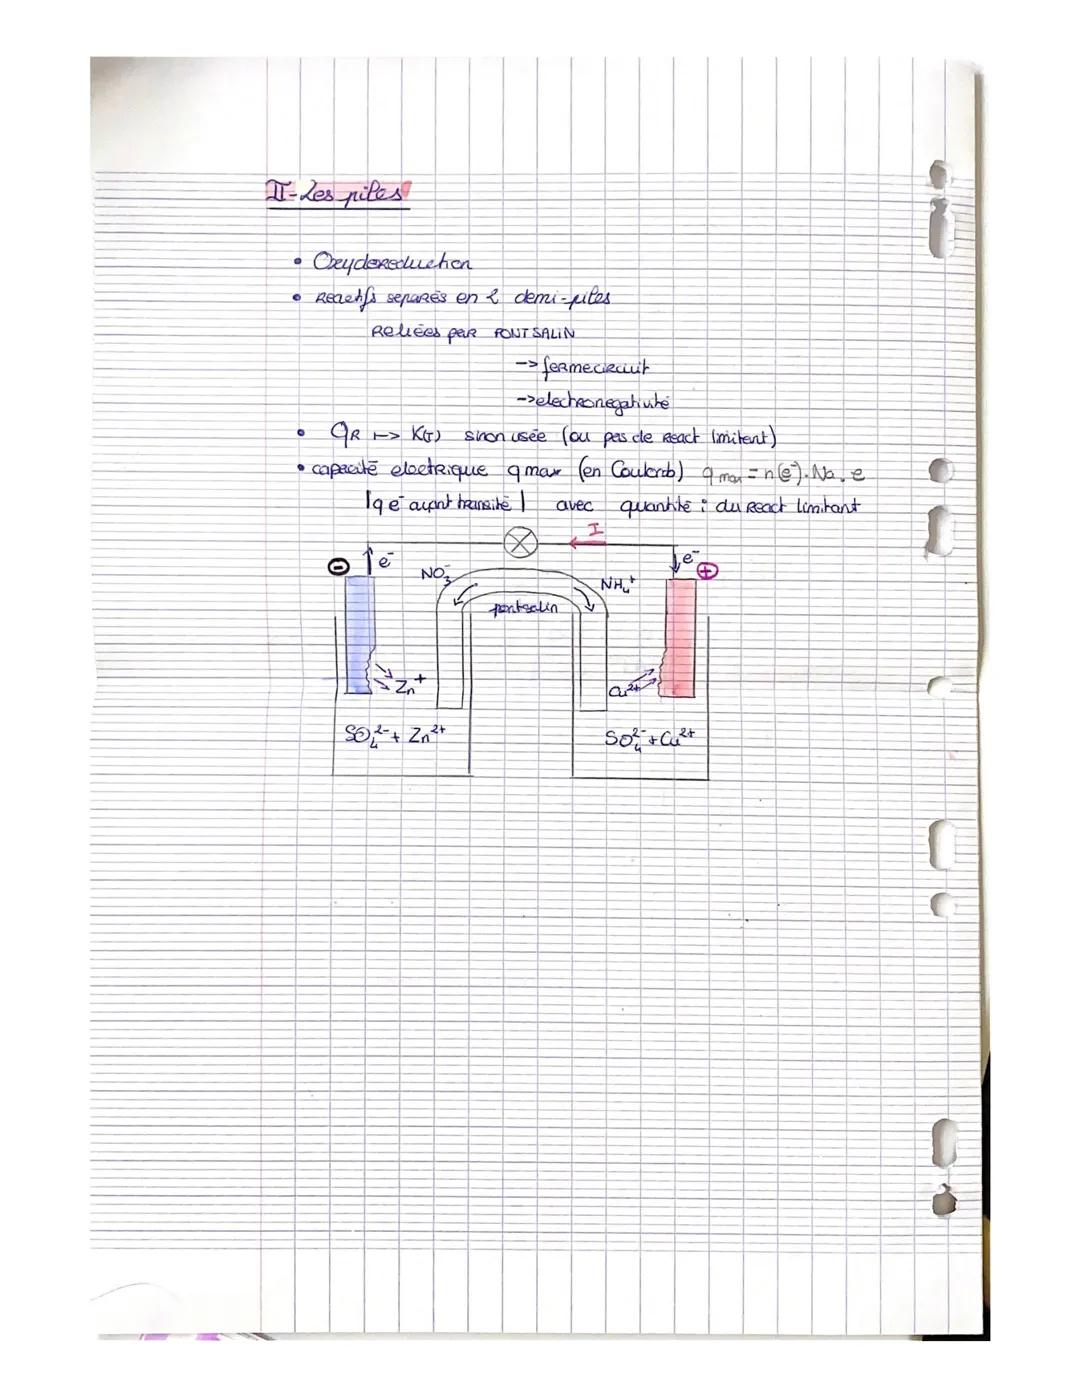 II-Les piles
• Oxydoreduction
• Reactifs separés en 2 demi-piles
Reliées par PONT SALIN
-> ferme circuit
-> electronegativité
• QR ↦ K(T) sinon usée (ou pas de React limitent)
• capacité electrique q max (en Coulomb) q max = n(e⁻). Na. e
|q e⁻ ayant transité| avec quantité i du React limitant
I
⊖ e⁻ NO₃⁻ NH₄⁺ e⁻ ⊕
pont salin
Zn⁺ Cu²⁺
SO₄²⁻ + Zn²⁺ SO₄²⁻ + Cu²⁺